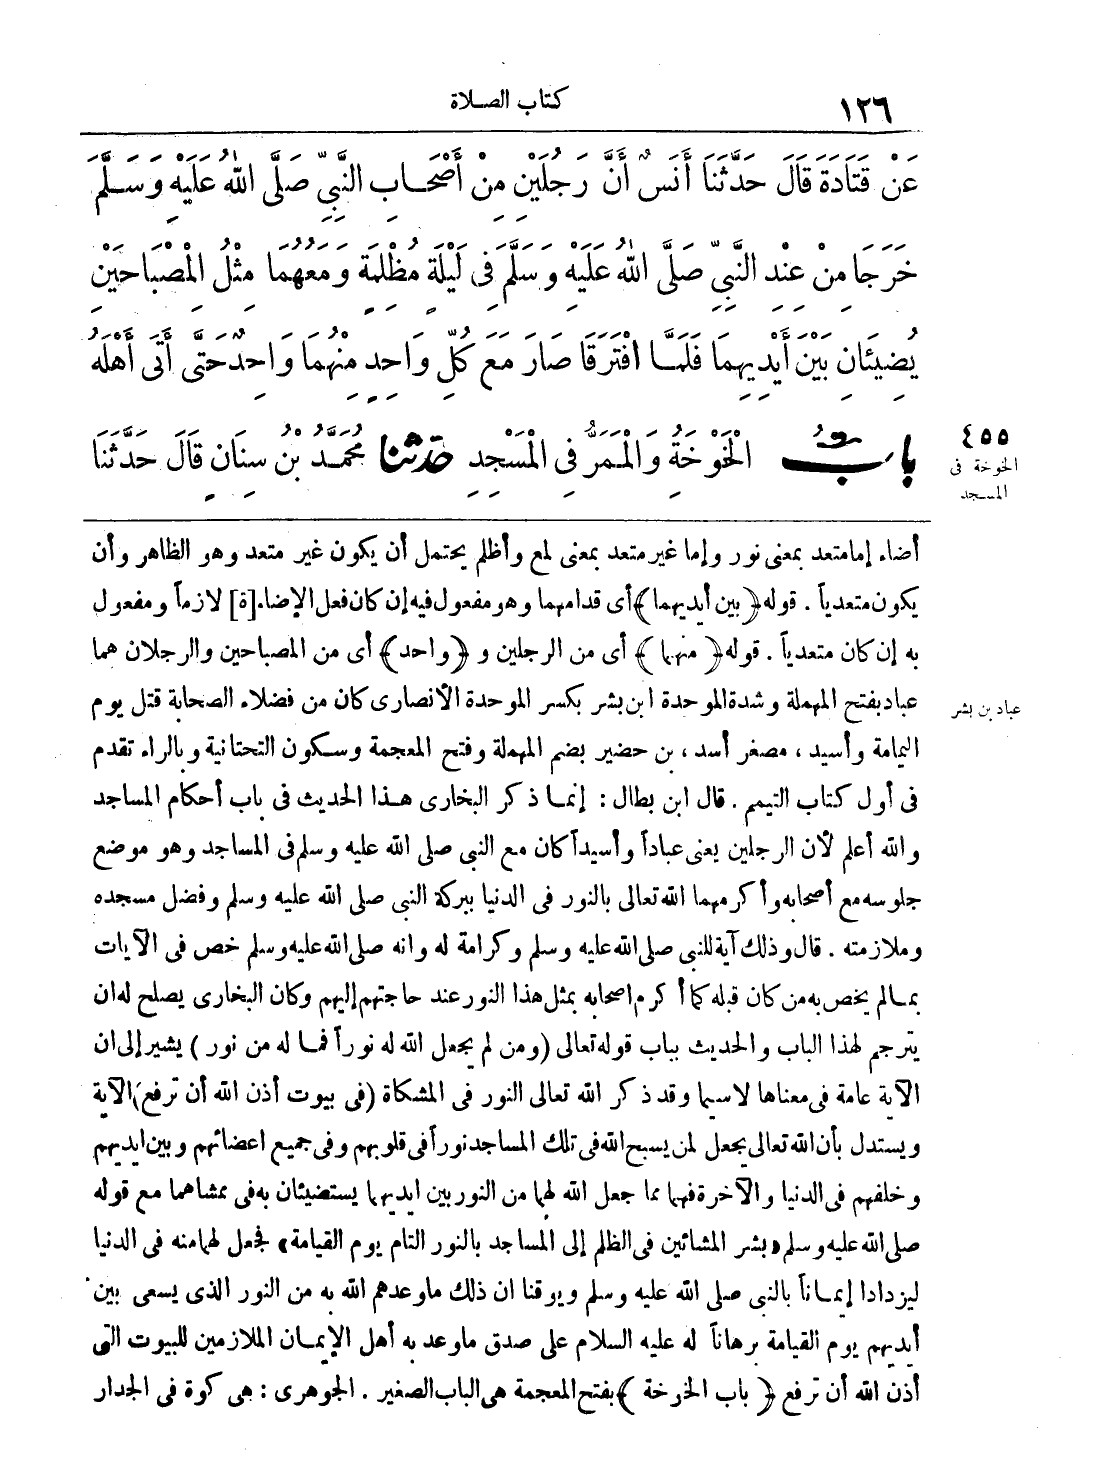 ١٢٦
كتاب الصلاة
عَنْ قَتَادَةَ قَالَ حَدَّثَنَا أَنَسٌ أَنَّ رَجُلَيْنِ مِنْ أَصْحَابِ النَّبِيِّ صَلَّى اللهُ عَلَيْهِ وَسَلَّمَ
خَرَجَا مِنْ عِنْدِ النَّبِيِّ صَلَّى اللهُ عَلَيْهِ وَسَلَّمَ فِى لَيْلَةٍ مُظْلِمَةٍ وَمَعَهُمَا مِثْلُ الْمِصْبَاحَيْنِ
يُضِيئَانِ بَيْنَ أَيْدِيهِمَا فَلَمَّا افْتَرَقَا صَارَ مَعَ كُلِّ وَاحِدٍ مِنْهُمَا وَاحِدٌ حَتَّى أَتَى أَهْلَهُ
بابُ الْخَوْخَةُ وَالْمَمَرُّ فِى الْمَسْجِدِ حدثنا مُحَمَّدُ بْنُ سِنَانٍ قَالَ حَدَّثَنَا
٤٥٥
الخوخة فى
المسجد
أضاء إما متعد بمعنى نور وإما غير متعد بمعنى لمع وأظلم يحتمل أن يكون غير متعد وهو الظاهر وأن
يكون متعدياً . قوله ﴿ بين أيديهما ﴾ أى قدامهما وهو مفعول فيه إن كان فعل الإضاء[ة] لازماً ومفعول
به إن كان متعدياً . قوله ﴿ منهما ﴾ أى من الرجلين و ﴿ واحد ﴾ أى من المصباحين والرجلان هما
عباد بفتح المهملة وشدة الموحدة ابن بشر بكسر الموحدة الأنصارى كان من فضلاء الصحابة قتل يوم
عباد بن بشر
اليمامة وأسيد ، مصغر أسد ، بن حضير بضم المهملة وفتح المعجمة وسكون التحتانية وبالراء تقدم
فى أول كتاب التيمم . قال ابن بطال : إنما ذكر البخارى هذا الحديث فى باب أحكام المساجد
والله أعلم لأن الرجلين يعنى عباداً وأسيداً كان مع النبى صلى الله عليه وسلم فى المساجد وهو موضع
جلوسه مع أصحابه وأكرمهما الله تعالى بالنور فى الدنيا ببركة النبى صلى الله عليه وسلم وفضل مسجده
وملازمته . قال وذلك آية للنبى صلى الله عليه وسلم وكرامة له وانه صلى الله عليه وسلم خص فى الآيات
بمالم يخص به من كان قبله كما أكرم اصحابه بمثل هذا النور عند حاجتهم إليهم وكان البخارى يصلح له ان
يترجم لهذا الباب والحديث بباب قوله تعالى (ومن لم يجعل الله له نوراً فما له من نور ) يشير إلى ان
الآية عامة فى معناها لاسيما وقد ذكر الله تعالى النور فى المشكاة (فى بيوت أذن الله أن ترفع) الآية
ويستدل بأن الله تعالى يجعل لمن يسبح الله فى تلك المساجد نوراً فى قلوبهم وفى جميع اعضائهم وبين ايديهم
وخلفهم فى الدنيا والآخرة فهما مما جعل الله لهما من النور بين ايديهما يستضيئان به فى ممشاهما مع قوله
صلى الله عليه وسلم «بشر المشائين فى الظلم إلى المساجد بالنور التام يوم القيامة» فجعل لهما منه فى الدنيا
ليزدادا إيماناً بالنبى صلى الله عليه وسلم ويوقنا ان ذلك ماوعدهم الله به من النور الذى يسعى بين
أيديهم يوم القيامة برهاناً له عليه السلام على صدق ماوعد به أهل الإيمان الملازمين للبيوت التى
أذن الله أن ترفع ﴿ باب الخوخة ﴾ بفتح المعجمة هى الباب الصغير . الجوهرى : هى كوة فى الجدار